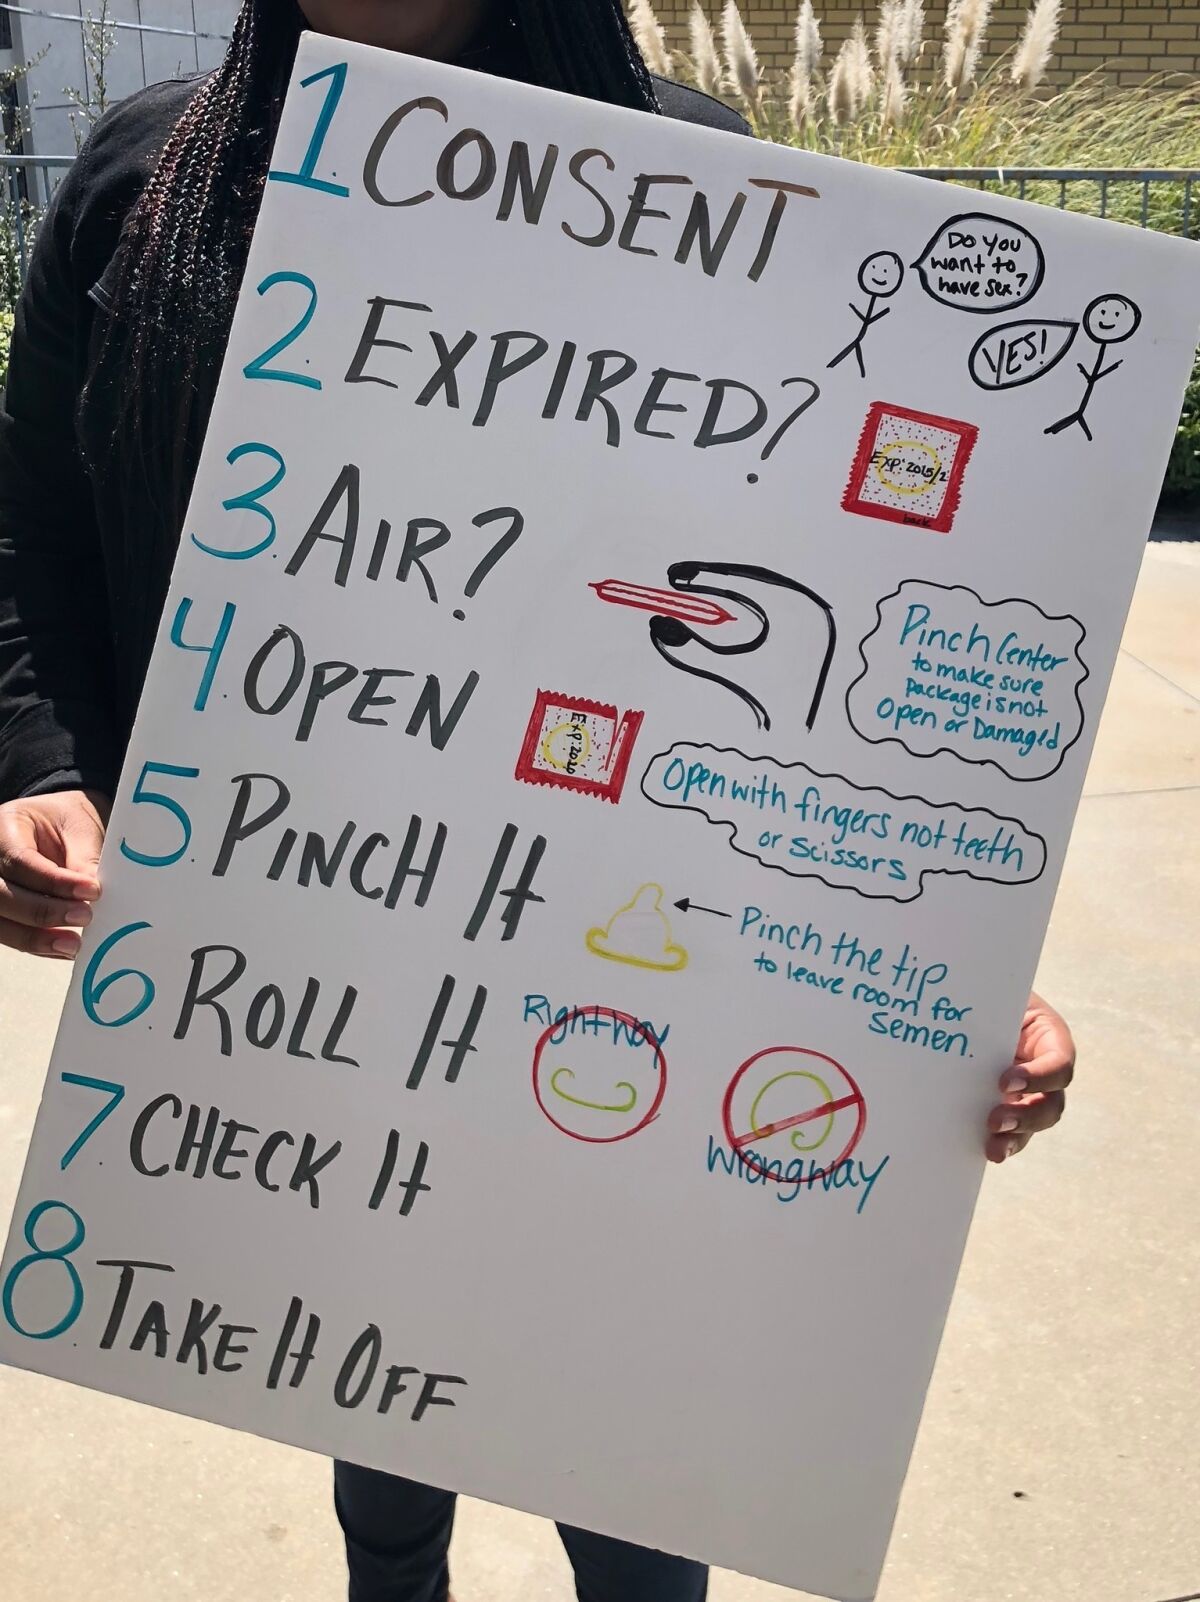 1. CONSENT
Do you
want to
have sex?
YES!
2. EXPIRED?
EXP: 2015/2
back
3. AIR?
Pinch Center
to make sure
package is not
Open or Damaged
4. OPEN
EXP: 2020
Open with fingers not teeth
or scissors
5. PINCH It
Pinch the tip
to leave room for
semen.
6. ROLL It
Right Way
Wrong way
7. CHECK It
8. TAKE It OFF